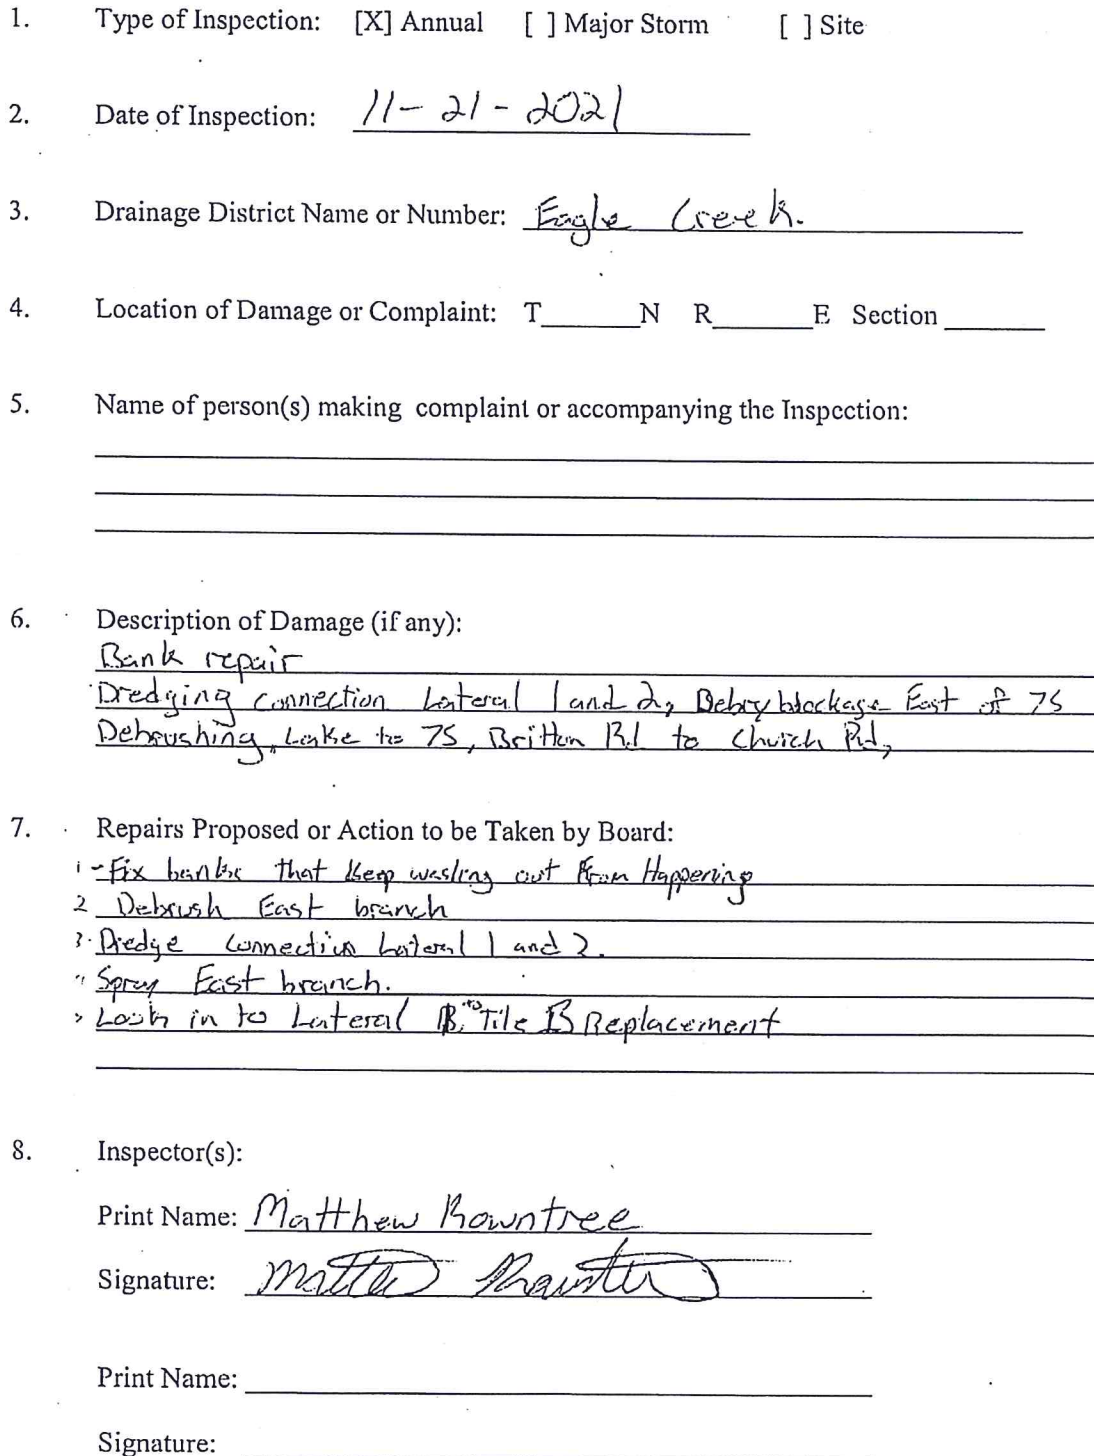 1. Type of Inspection: [X] Annual [ ] Major Storm [ ] Site
2. Date of Inspection: 11-21-2021
3. Drainage District Name or Number: Eagle Creek.
4. Location of Damage or Complaint: T______N R______E Section ______
5. Name of person(s) making complaint or accompanying the Inspection:
6. Description of Damage (if any):
Bank repair
Dredging connection Lateral 1 and 2, Debry blockage East of 75
Debrushing, Lake to 75, Britton Rd to Church Rd,
7. Repairs Proposed or Action to be Taken by Board:
1 - Fix banks that keep washing out From Happening
2 Debrush East branch
3. Dredge connection Lateral 1 and 2.
Spray East branch.
Look in to Lateral B, to Tile B Replacement
8. Inspector(s):
Print Name: Matthew Rowntree
Signature: Matthew Rowntree
Print Name:
Signature: